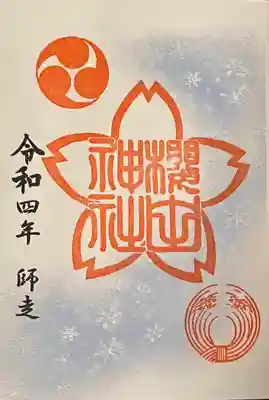 櫻山
神社
令和四年 師走